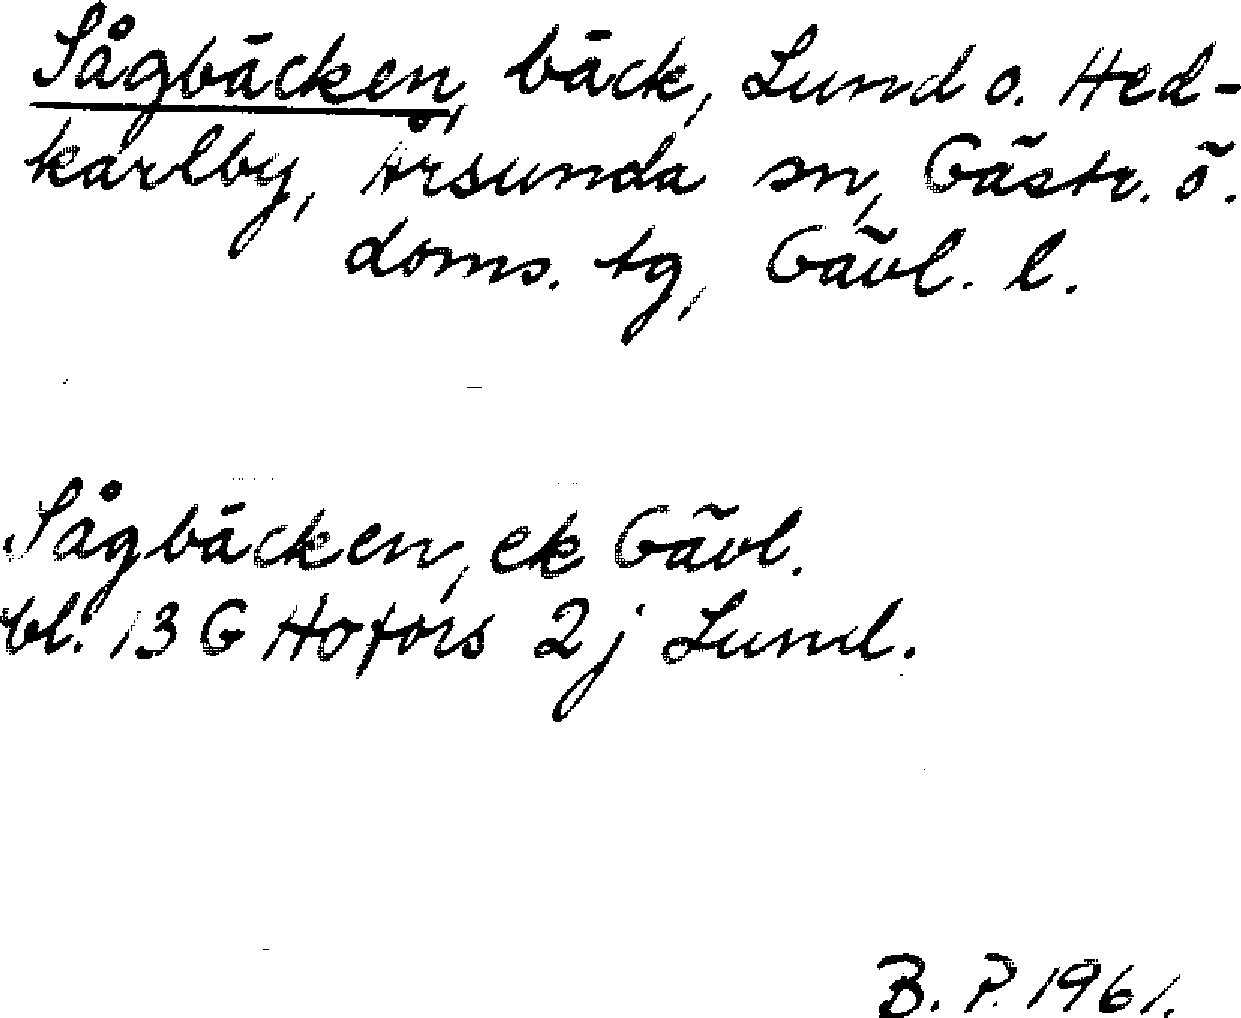 Sågbäcken, bäck, Lund o. Hed-
karlby, Årsunda sn, Gästr. ö.
doms. tg, Gävl. l.
Sågbäcken, ek Gävl.
bl. 13 G Hofors 2 j Lund.
B. P. 1961.